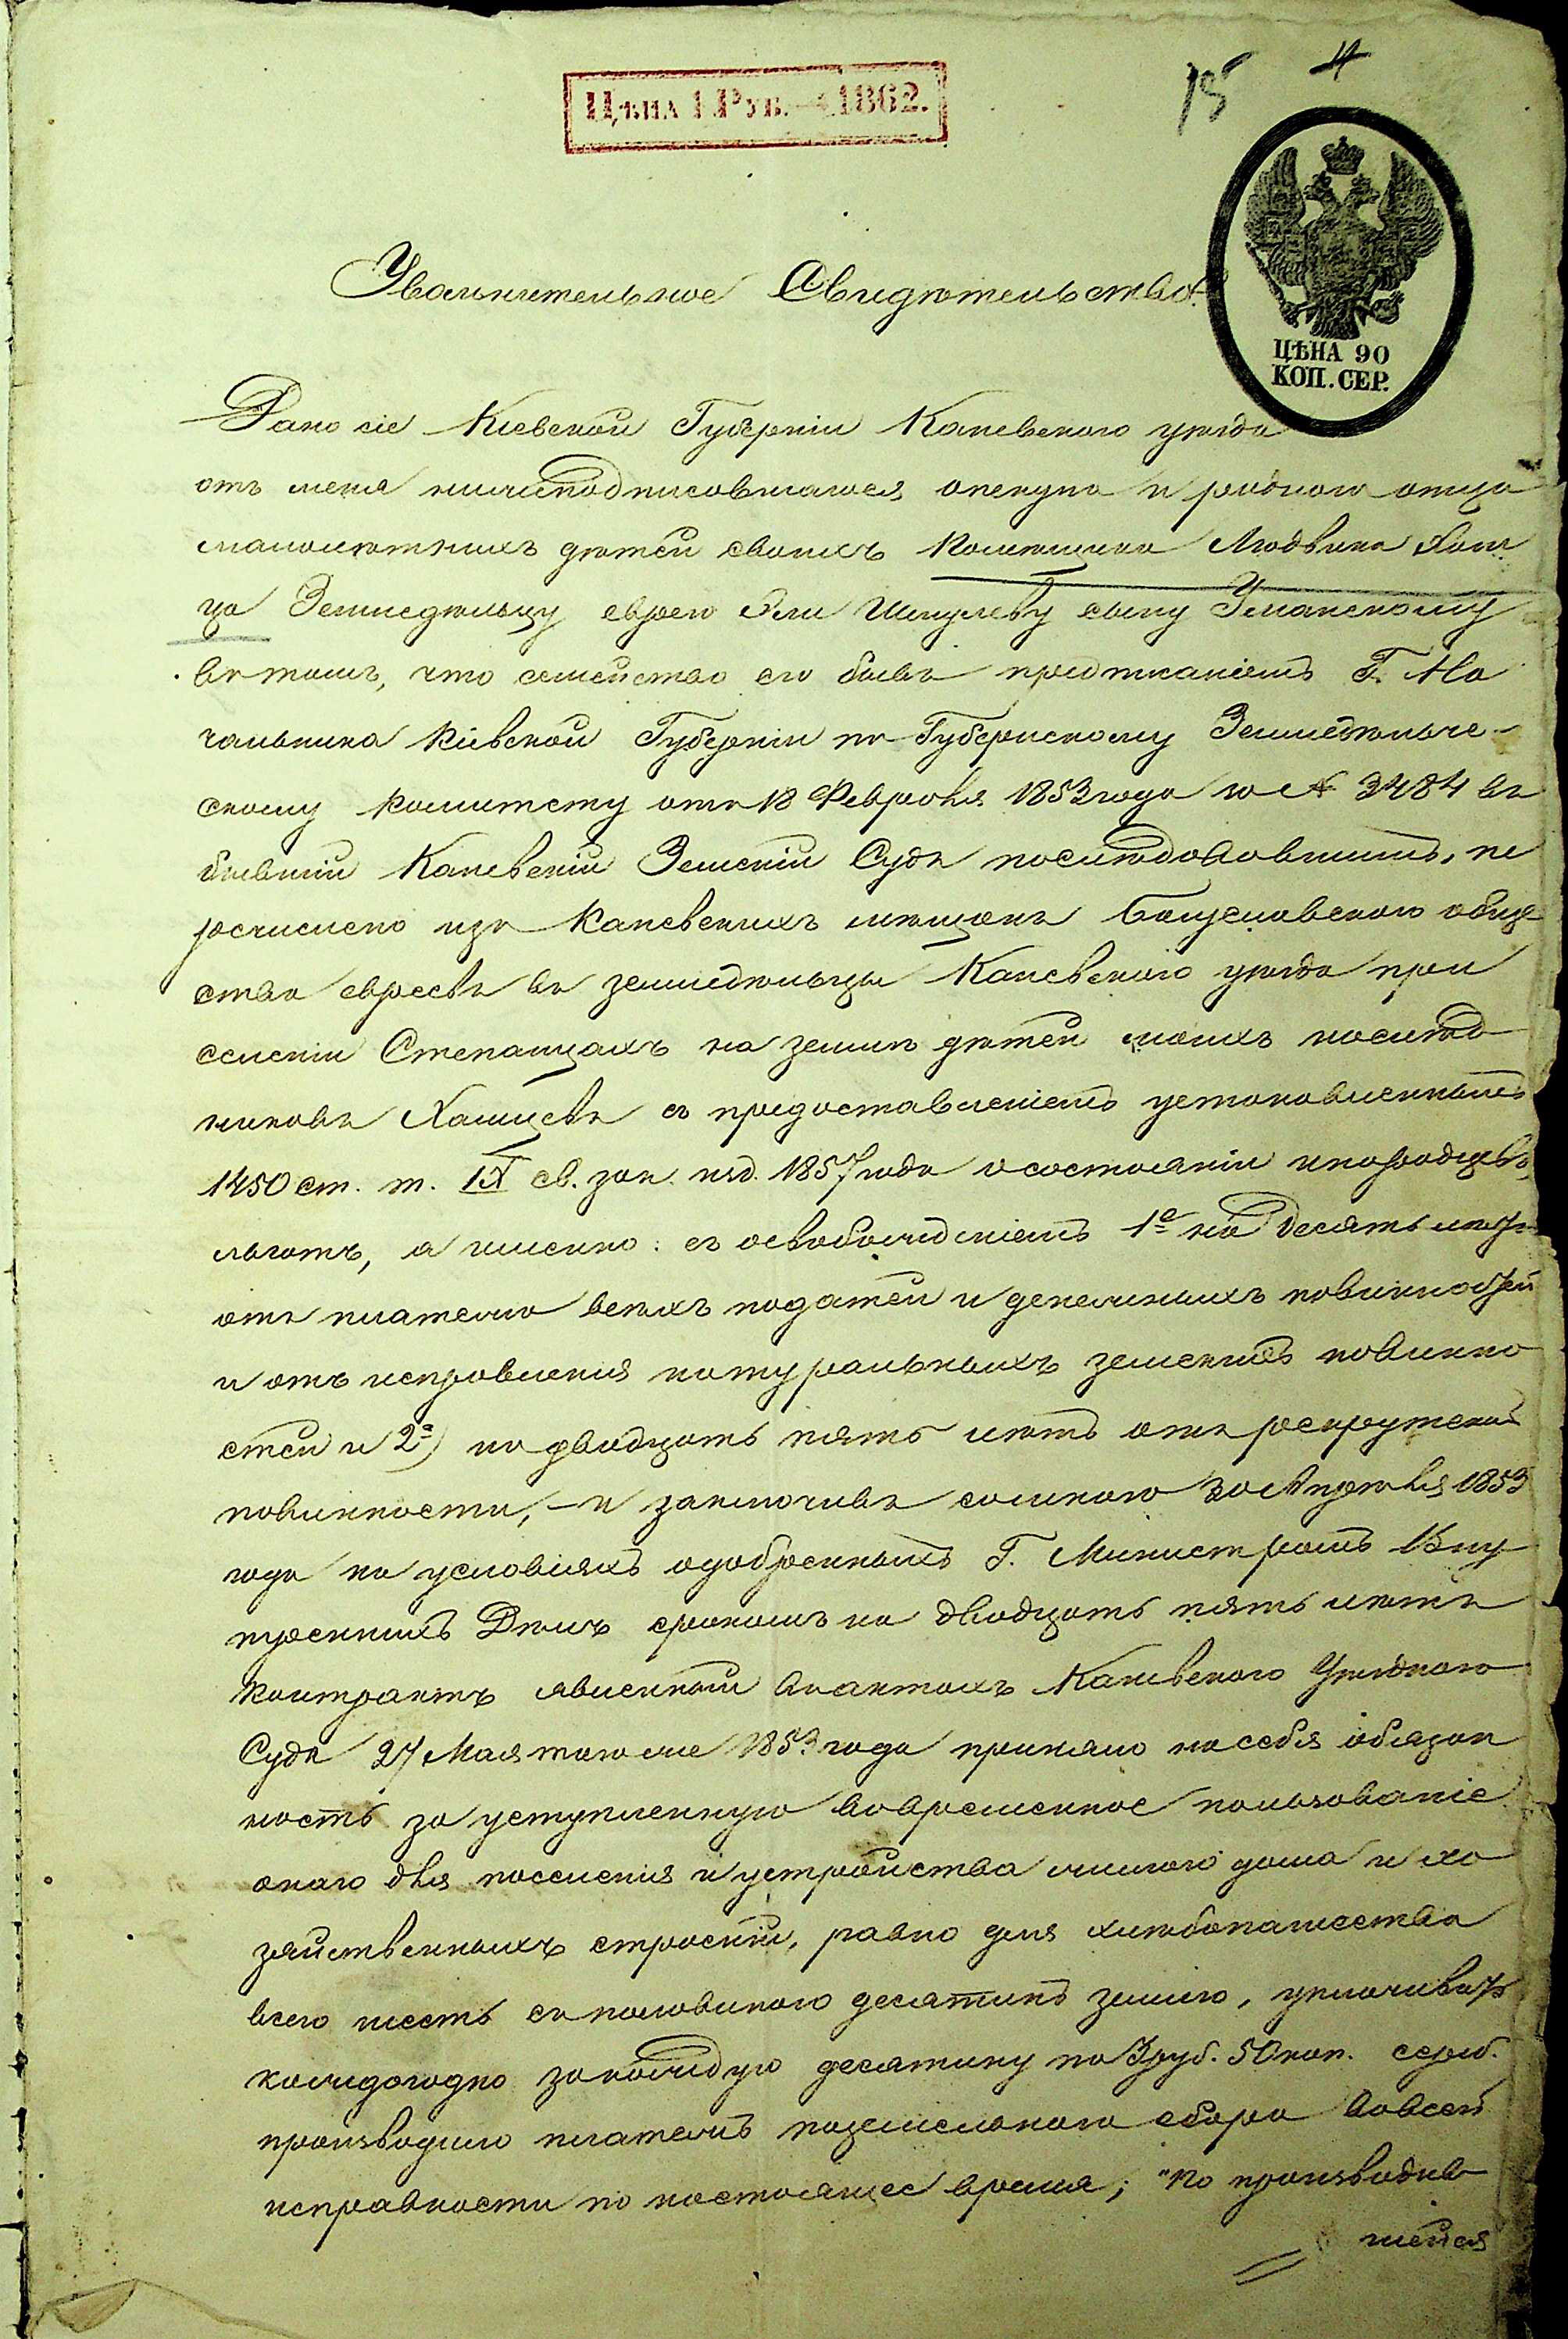 15 4
Цѣна 1 Рув. 1862.
ЦѢНА 90
КОП. СЕР.
Увольнительное Свидѣтельство.
Дано сіе Кіевской Губерніи Каневскаго уѣзда
отъ меня нижеподписавшагося опекуна и роднаго отца
малолѣтнихъ дѣтей своихъ Помѣщика Людвика
Земледѣльцу еврею Шмулеву сыну Уманскому
въ томъ, что семейство его бывъ предписаніемъ Г. На
чальника Кіевской Губерніи по Губернскому Земледѣльче-
скому Комитету отъ 18 Февраля 1853 года за № 3484 въ
бывшій Каневскій Земскій Судъ послѣдовавшимъ, пе
речислено изъ Каневскихъ мѣщанъ Богуславскаго обще
ства евреевъ въ земледѣльцы Каневскаго уѣзда при
селеніи Степанцахъ на землѣ дѣтей моихъ наслѣд
никовъ съ предоставленіемъ установленныхъ
1450 ст. т. IX св. зак. изд. 1857 года о состояніи инородцевъ,
льготъ, а именно: съ освобожденіемъ 1е на десять лѣтъ
отъ платежа всѣхъ податей и денежныхъ повинностей
и отъ исправленія натуральныхъ земскихъ повинно
стей и 2е) на двадцать пять лѣтъ отъ рекрутской
повинности, – и заключивъ со мною 30 Апрѣля 1853
года на условіяхъ одобренныхъ Г. Министромъ Вну
треннихъ Дѣлъ срокомъ на двадцать пять лѣтъ
контрактъ явленный въ актахъ Каневскаго Уѣзднаго
Суда 27 Мая того же 1853 года приняло на себя обязан
ность за уступленную во временное пользованіе
онаго для поселенія и устройства жилаго дома и хо
зяйственныхъ строеній, равно для хлѣбопашества
всего шесть съ половиною десятинъ землю, уплачивать
каждогодно за каждую десятину по 3 руб. 50 коп. сереб.
производило платежъ поземельнаго сбора во всей
исправности по настоящее время; но производив
шейся